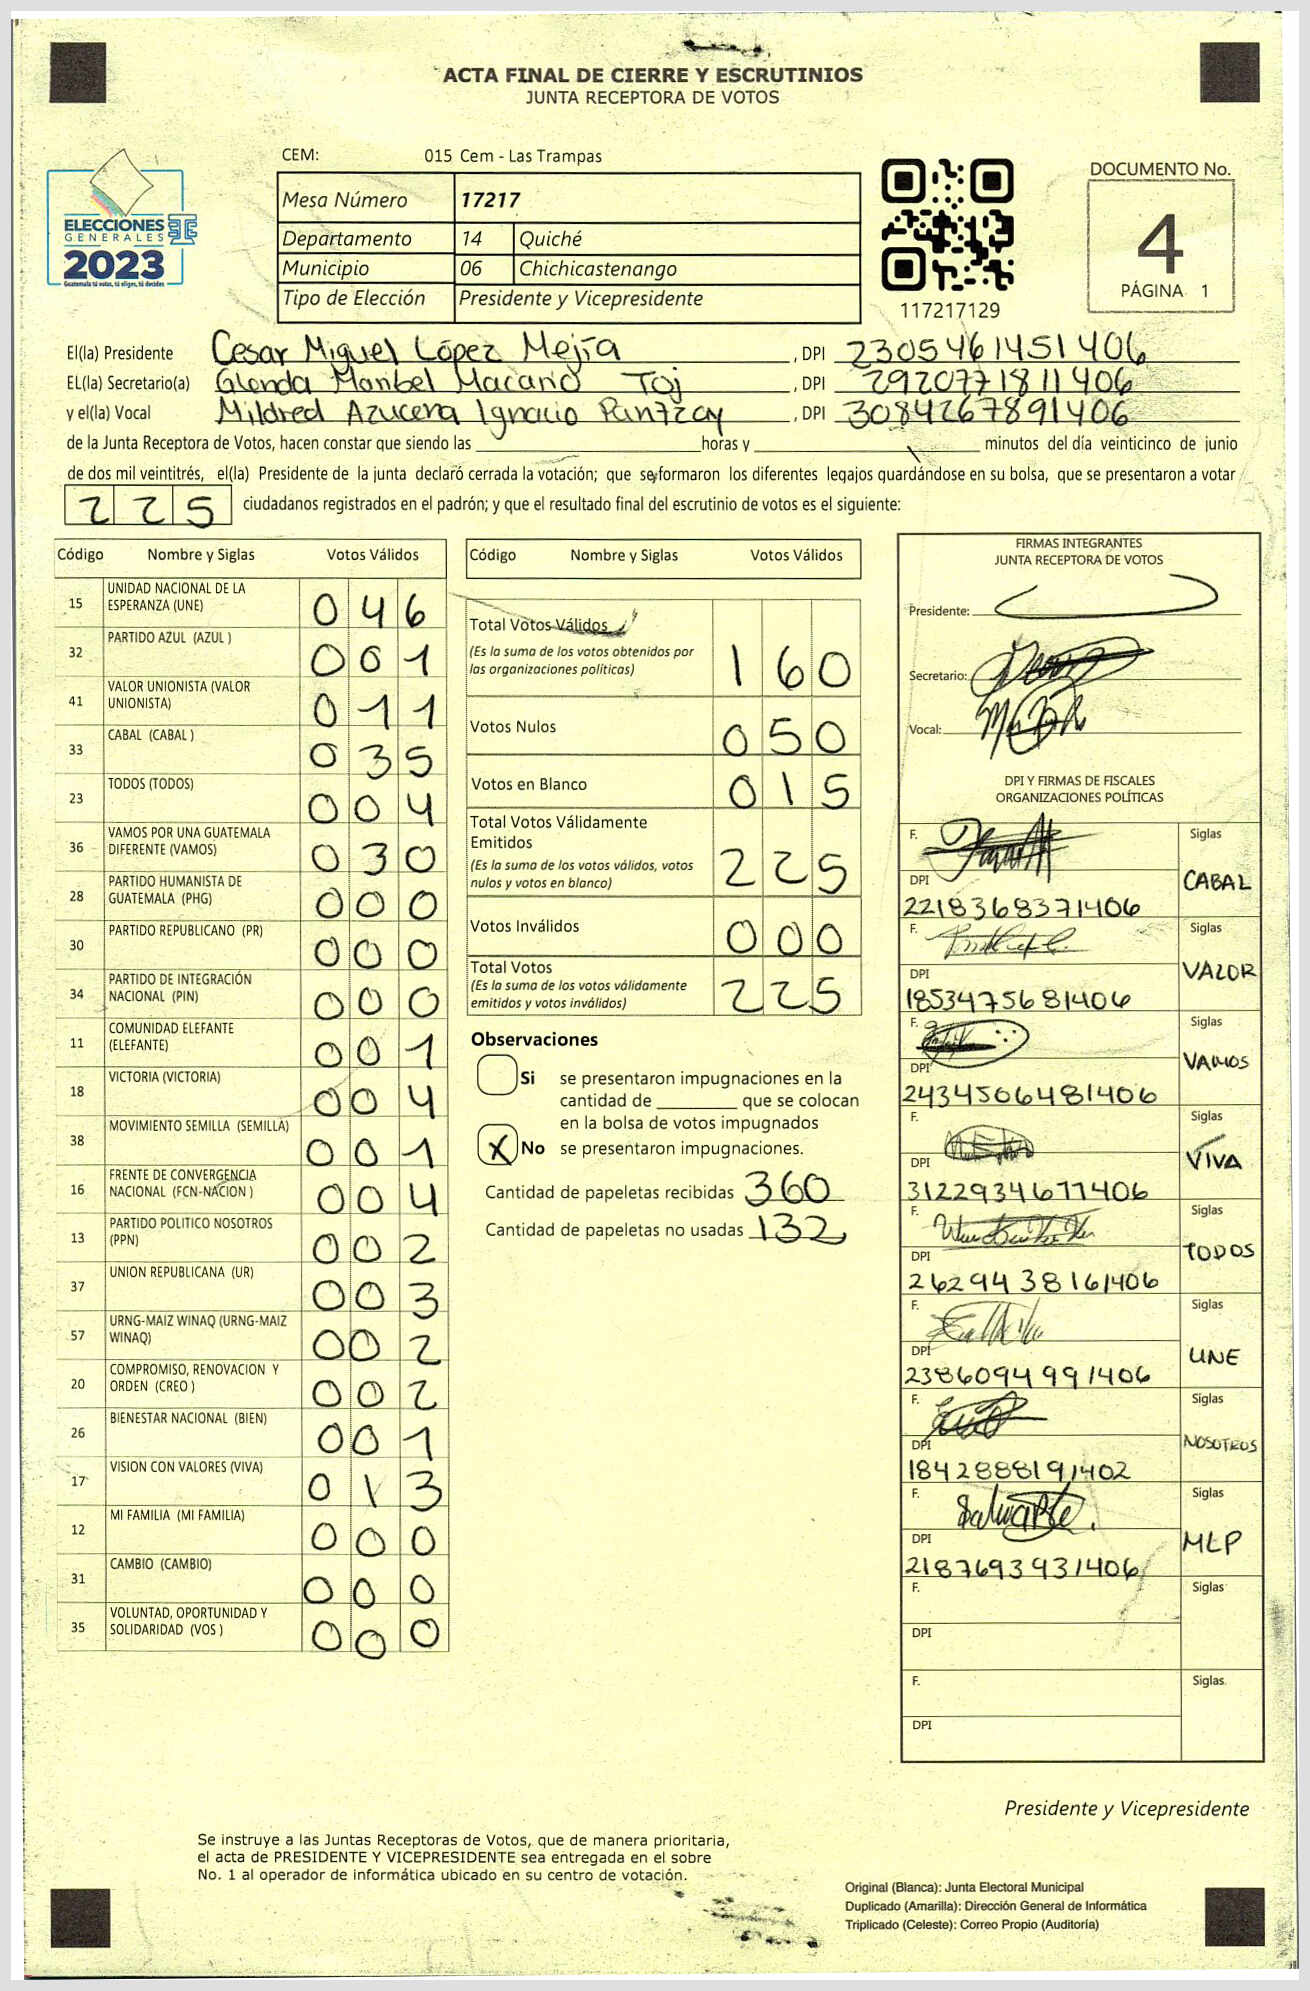 ACTA FINAL DE CIERRE Y ESCRUTINIOS
JUNTA RECEPTORA DE VOTOS
ELECCIONES
GENERALES
2023
Guatemala tú votas, tú eliges, tú decides
CEM: 015 Cem - Las Trampas
Mesa Número 17217
Departamento 14 Quiché
Municipio 06 Chichicastenango
Tipo de Elección Presidente y Vicepresidente
117217129
DOCUMENTO No.
4
PÁGINA 1
El(la) Presidente Cesar Miguel López Mejía , DPI 2305461451406
EL(la) Secretario(a) Glenda Maribel Macario Toj , DPI 2920771811406
y el(la) Vocal Mildred Azucena Ignacio Pantzay , DPI 3084267891406
de la Junta Receptora de Votos, hacen constar que siendo las horas y minutos del día veinticinco de junio
de dos mil veintitrés, el(la) Presidente de la junta declaró cerrada la votación; que se formaron los diferentes legajos guardándose en su bolsa, que se presentaron a votar
225 ciudadanos registrados en el padrón; y que el resultado final del escrutinio de votos es el siguiente:
Código Nombre y Siglas Votos Válidos
15 UNIDAD NACIONAL DE LA ESPERANZA (UNE) 046
32 PARTIDO AZUL (AZUL ) 001
41 VALOR UNIONISTA (VALOR UNIONISTA) 011
33 CABAL (CABAL ) 035
23 TODOS (TODOS) 004
36 VAMOS POR UNA GUATEMALA DIFERENTE (VAMOS) 030
28 PARTIDO HUMANISTA DE GUATEMALA (PHG) 000
30 PARTIDO REPUBLICANO (PR) 000
34 PARTIDO DE INTEGRACIÓN NACIONAL (PIN) 000
11 COMUNIDAD ELEFANTE (ELEFANTE) 001
18 VICTORIA (VICTORIA) 004
38 MOVIMIENTO SEMILLA (SEMILLA) 001
16 FRENTE DE CONVERGENCIA NACIONAL (FCN-NACION ) 004
13 PARTIDO POLITICO NOSOTROS (PPN) 002
37 UNION REPUBLICANA (UR) 003
57 URNG-MAIZ WINAQ (URNG-MAIZ WINAQ) 002
20 COMPROMISO, RENOVACION Y ORDEN (CREO ) 002
26 BIENESTAR NACIONAL (BIEN) 001
17 VISION CON VALORES (VIVA) 013
12 MI FAMILIA (MI FAMILIA) 000
31 CAMBIO (CAMBIO) 000
35 VOLUNTAD, OPORTUNIDAD Y SOLIDARIDAD (VOS ) 000
Código Nombre y Siglas Votos Válidos
Total Votos Válidos 160
(Es la suma de los votos obtenidos por
las organizaciones políticas)
Votos Nulos 050
Votos en Blanco 015
Total Votos Válidamente
Emitidos 225
(Es la suma de los votos válidos, votos
nulos y votos en blanco)
Votos Inválidos 000
Total Votos 225
(Es la suma de los votos válidamente
emitidos y votos inválidos)
Observaciones
Si se presentaron impugnaciones en la
cantidad de que se colocan
en la bolsa de votos impugnados
X No se presentaron impugnaciones.
Cantidad de papeletas recibidas 360
Cantidad de papeletas no usadas 132
FIRMAS INTEGRANTES
JUNTA RECEPTORA DE VOTOS
Presidente:
Secretario:
Vocal:
DPI Y FIRMAS DE FISCALES
ORGANIZACIONES POLÍTICAS
F. Siglas
DPI CABAL
2218368371406
F. Siglas
DPI VALOR
1853475681406
F. Siglas
DPI VAMOS
2434506481406
F. Siglas
DPI VIVA
3122934671406
F. Siglas
DPI TODOS
2629438161406
F. Siglas
DPI UNE
2386094991406
F. Siglas
DPI NOSOTROS
1842888191402
F. Siglas
DPI MLP
2187693931406
F. Siglas
DPI
F. Siglas
DPI
Presidente y Vicepresidente
Se instruye a las Juntas Receptoras de Votos, que de manera prioritaria,
el acta de PRESIDENTE Y VICEPRESIDENTE sea entregada en el sobre
No. 1 al operador de informática ubicado en su centro de votación.
Original (Blanca): Junta Electoral Municipal
Duplicado (Amarilla): Dirección General de Informática
Triplicado (Celeste): Correo Propio (Auditoría)